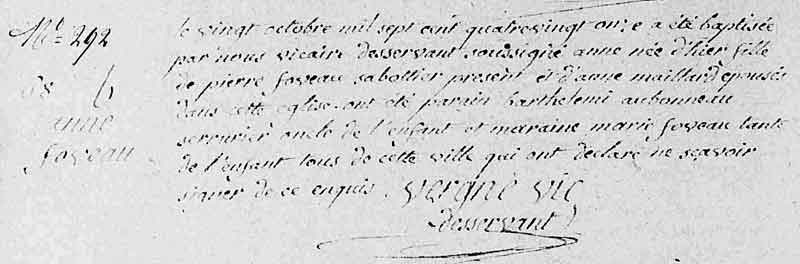 N° 292
anne
foveau
le vingt octobre mil sept cent quatrevingt onze a été baptisée
par nous vicaire desservant soussigné anne née d'hier fille
de pierre foveau sabottier present et d'anne maillard epousés
dans cette eglise. ont été parain barthelemi aubonneau
serrurier oncle de l'enfant et maraine marie foveau tante
de l'enfant tous de cette ville qui ont declaré ne scavoir
signer de ce enquis. vergne vic
desservant